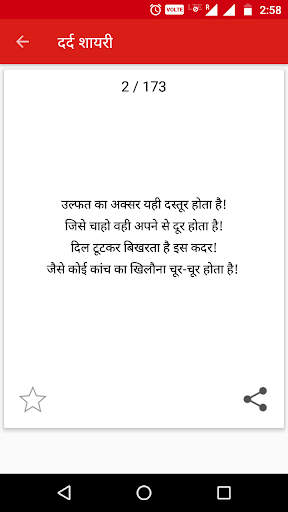 VOLTE LTE R 2:58
दर्द शायरी
2 / 173
उल्फत का अक्सर यही दस्तूर होता है!
जिसे चाहो वही अपने से दूर होता है!
दिल टूटकर बिखरता है इस कदर!
जैसे कोई कांच का खिलौना चूर-चूर होता है!